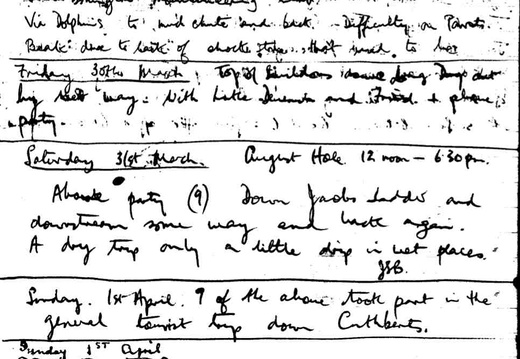 Via Dolphins to mid chute and back. Difficulty on Parrots
Beak due to lack of that used to be
Friday 30th March. Top of down Long Drop out
by wet way. With little and + phone
party.
Saturday 31st March. August Hole 12 noon - 6.30 pm.
Above party (9) Down Jacobs Ladder and
downstream some way and back again.
A dry trip only a little drip in wet places.
JSB.
Sunday. 1st April. 9 of the above took part in the
general tourist trip down Cuthberts.
Sunday 1ST April